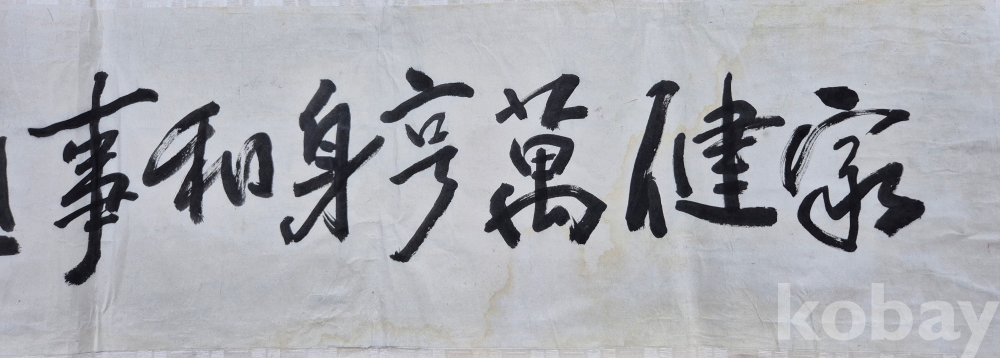 家健萬亨身和事
kobay